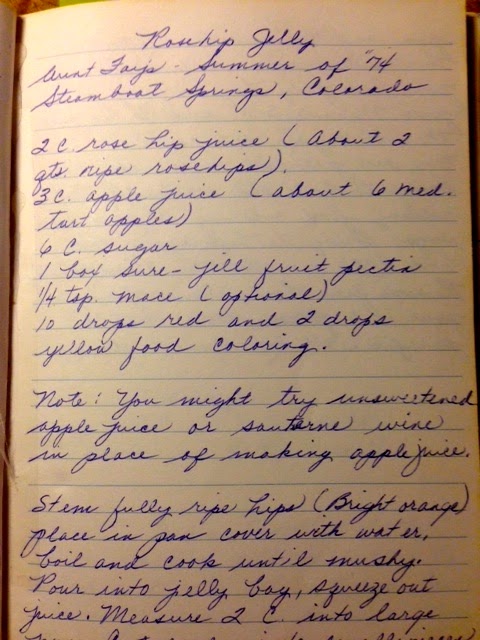 Rosehip Jelly
Aunt Fay's - Summer of "74
Steamboat Springs, Colorado
2 C. rose hip juice (About 2
qts. ripe rosehips).
3 C. apple juice (about 6 med.
tart apples)
6 C. sugar
1 box Sure-jill fruit pectin
1/4 tsp. mace (optional)
10 drops red and 2 drops
yellow food coloring.
Note: You might try unsweetened
apple juice or sauterne wine
in place of making apple juice.
Stem fully ripe hips (Bright orange)
place in pan cover with water,
boil and cook until mushy.
Pour into jelly bag, squeeze out
juice. Measure 2 C. into large